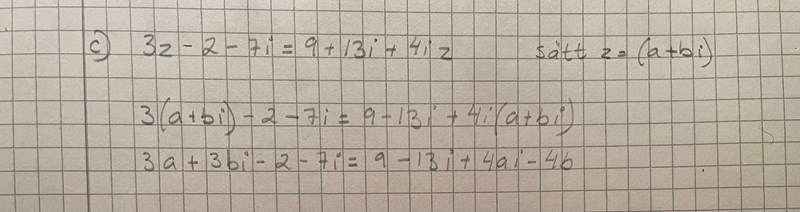 c) 3z - 2 - 7i = 9 + 13i + 4iz sätt z = (a+bi)
3(a+bi) - 2 - 7i = 9 - 13i + 4i(a+bi)
3a + 3bi - 2 - 7i = 9 - 13i + 4ai - 4b